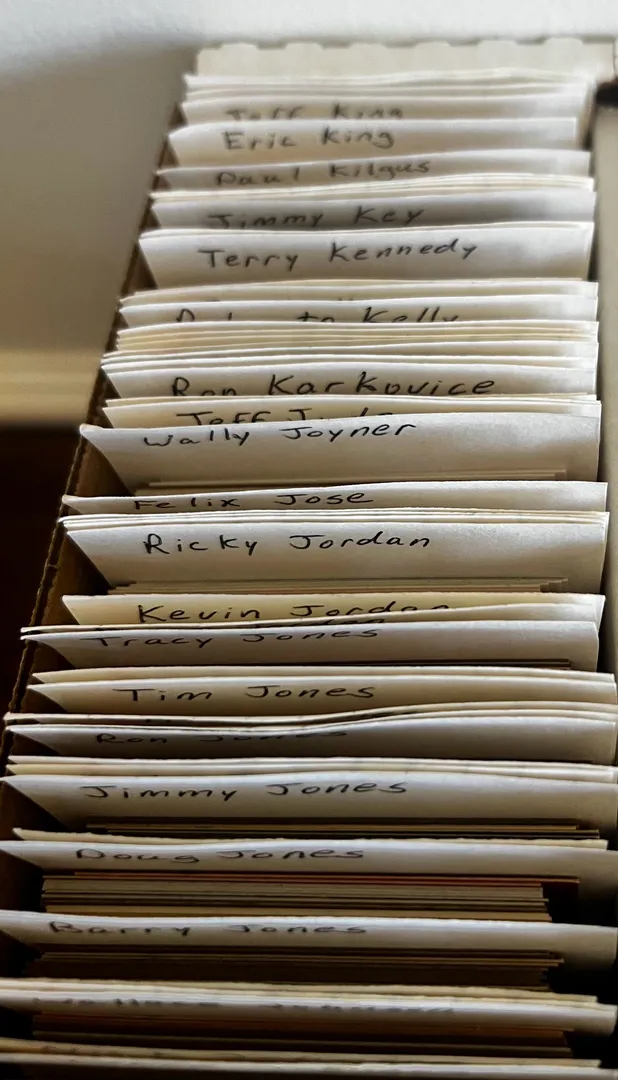 Jeff King
Eric King
Paul Kilgus
Jimmy Key
Terry Kennedy
Kelly
Ron Karkovice
Jeff
Wally Joyner
Felix Jose
Ricky Jordan
Kevin Jordan
Tracy Jones
Tim Jones
Ron Jones
Jimmy Jones
Doug Jones
Barry Jones
Wallace Johnson